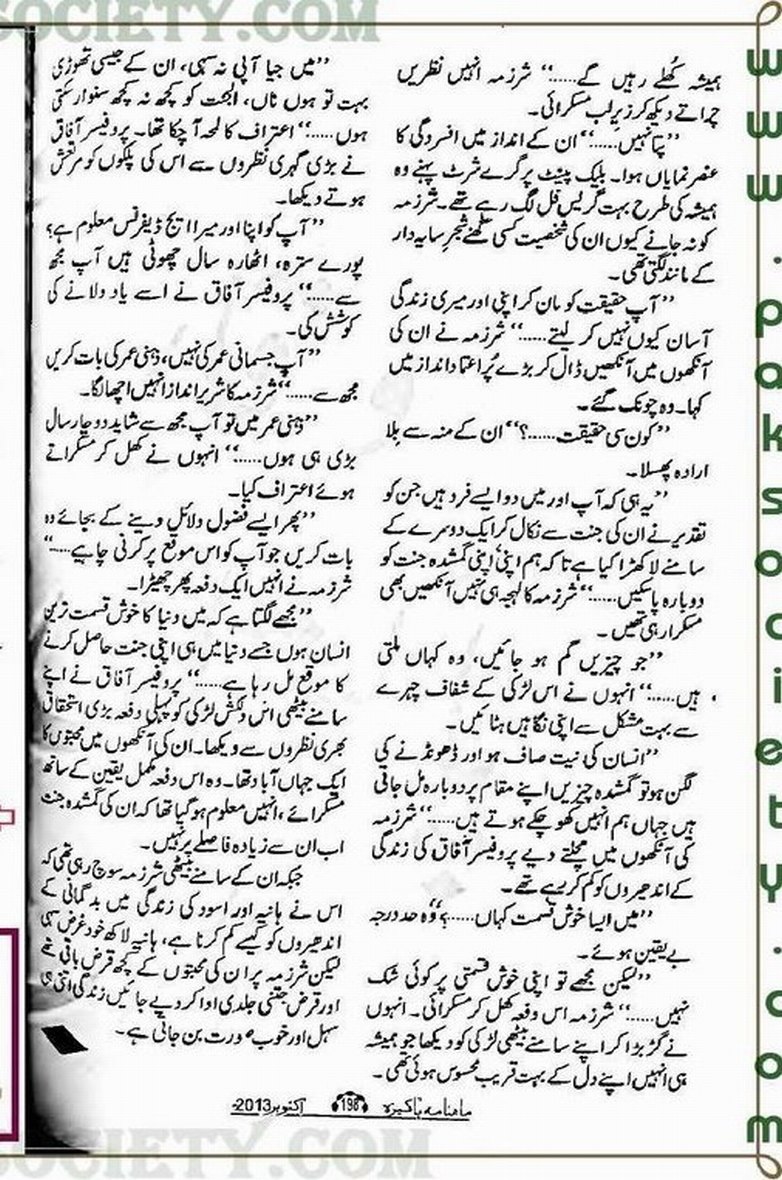 ہمیشہ کُھلے رہیں گے.....‘‘ شرزمہ انہیں نظریں
چراتے دیکھ کر زیرِلب مسکرائی۔
’’پتا نہیں.....‘‘ ان کے انداز میں افسردگی کا
عنصر نمایاں ہوا۔ بلیک پینٹ پر گرے شرٹ پہنے وہ
ہمیشہ کی طرح بہت گریس فل لگ رہے تھے۔ شرزمہ
کو نہ جانے کیوں ان کی شخصیت کسی گھنے شجرِ سایہ دار
کے مانند لگتی تھی۔
’’آپ حقیقت کو مان کر اپنی اور میری زندگی
آسان کیوں نہیں کر لیتے.....‘‘ شرزمہ نے ان کی
آنکھوں میں آنکھیں ڈال کر بڑے پُراعتماد انداز میں
کہا۔ وہ چونک گئے۔
’’کون سی حقیقت......؟‘‘ ان کے منہ سے بِلا
ارادہ پھسلا۔
’’یہ ہی کہ آپ اور میں دو ایسے فرد ہیں جن کو
تقدیر نے ان کی جنت سے نکال کر ایک دوسرے کے
سامنے لا کھڑا کیا ہے تاکہ ہم اپنی اپنی گمشدہ جنت کو
دوبارہ پا سکیں......‘‘ شرزمہ کا لہجہ ہی نہیں آنکھیں بھی
مسکرا رہی تھیں۔
’’جو چیزیں گم ہو جائیں، وہ کہاں ملتی
ہیں.....‘‘ انہوں نے اس لڑکی کے شفاف چہرے
سے بہت مشکل سے اپنی نگاہیں ہٹائیں۔
’’انسان کی نیت صاف ہو اور ڈھونڈنے کی
لگن ہو تو گمشدہ چیزیں اپنے مقام پر دوبارہ مل جاتی
ہیں جہاں ہم انہیں کھو چکے ہوتے ہیں......‘‘ شرزمہ
کی آنکھوں میں مچلتے دیے پروفیسر آفاق کی زندگی
کے اندھیروں کو کم کر رہے تھے۔
’’میں ایسا خوش قسمت کہاں.....؟‘‘ وہ حد درجہ
بے یقین ہوئے۔
’’لیکن مجھے تو اپنی خوش قسمتی پر کوئی شک
نہیں.....‘‘ شرزمہ اس دفعہ کھل کر مسکرائی۔ انہوں
نے گڑبڑا کر اپنے سامنے بیٹھی لڑکی کو دیکھا جو ہمیشہ
ہی انہیں اپنے دل کے بہت قریب محسوس ہوئی تھی۔
’’میں جیا آپی نہ سہی، ان کے جیسی تھوڑی
بہت تو ہوں ناں، ایجٹ کو کچھ نہ کچھ سنوار سکتی
ہوں.....‘‘ اعتراف کا لمحہ آ چکا تھا۔ پروفیسر آفاق
نے بڑی گہری نظروں سے اس کی پلکوں کو مرتعش
ہوتے دیکھا۔
’’آپ کو اپنا اور میرا ایج ڈیفرنس معلوم ہے؟
پورے سترہ، اٹھارہ سال چھوٹی ہیں آپ مجھ
سے.....‘‘ پروفیسر آفاق نے اسے یاد دلانے کی
کوشش کی۔
’’آپ جسمانی عمر کی نہیں، ذہنی عمر کی بات کریں
مجھ سے.....‘‘ شرزمہ کا شریر انداز انہیں اچھا لگا۔
’’ذہنی عمر میں تو آپ مجھ سے شاید دو چار سال
بڑی ہی ہوں.....‘‘ انہوں نے کھل کر مسکراتے
ہوئے اعتراف کیا۔
’’پھر ایسے فضول دلائل دینے کے بجائے وہ
بات کریں جو آپ کو اس موقع پر کرنی چاہیے.....‘‘
شرزمہ نے انہیں ایک دفعہ پھر چھیڑا۔
’’مجھے لگتا ہے کہ میں دنیا کا خوش قسمت ترین
انسان ہوں جسے دنیا میں ہی اپنی جنت حاصل کرنے
کا موقع مل رہا ہے.....‘‘ پروفیسر آفاق نے اپنے
سامنے بیٹھی اس دلکش لڑکی کو پہلی دفعہ بڑی استحقاق
بھری نظروں سے دیکھا۔ ان کی آنکھوں میں محبتوں کا
ایک جہاں آباد تھا۔ وہ اس دفعہ مکمل یقین کے ساتھ
مسکرائے، انہیں معلوم ہو گیا تھا کہ ان کی گمشدہ جنت
اب ان سے زیادہ فاصلے پر نہیں۔
جبکہ ان کے سامنے بیٹھی شرزمہ سوچ رہی تھی کہ
اس نے ہانیہ اور اسود کی زندگی میں بدگمانی کے
اندھیروں کو کیسے کم کرنا ہے، ہانیہ لاکھ خود غرض سہی
لیکن شرزمہ پر ان کی محبتوں کے کچھ قرض باقی تھے
اور قرض جتنی جلدی ادا کر دیے جائیں زندگی اتنی ہی
سہل اور خوب صورت بن جاتی ہے۔
ماہنامہ پاکیزہ 198 اکتوبر 2013ء
www.paksociety.com
SOCIETY.COM
SOCIETY.COM